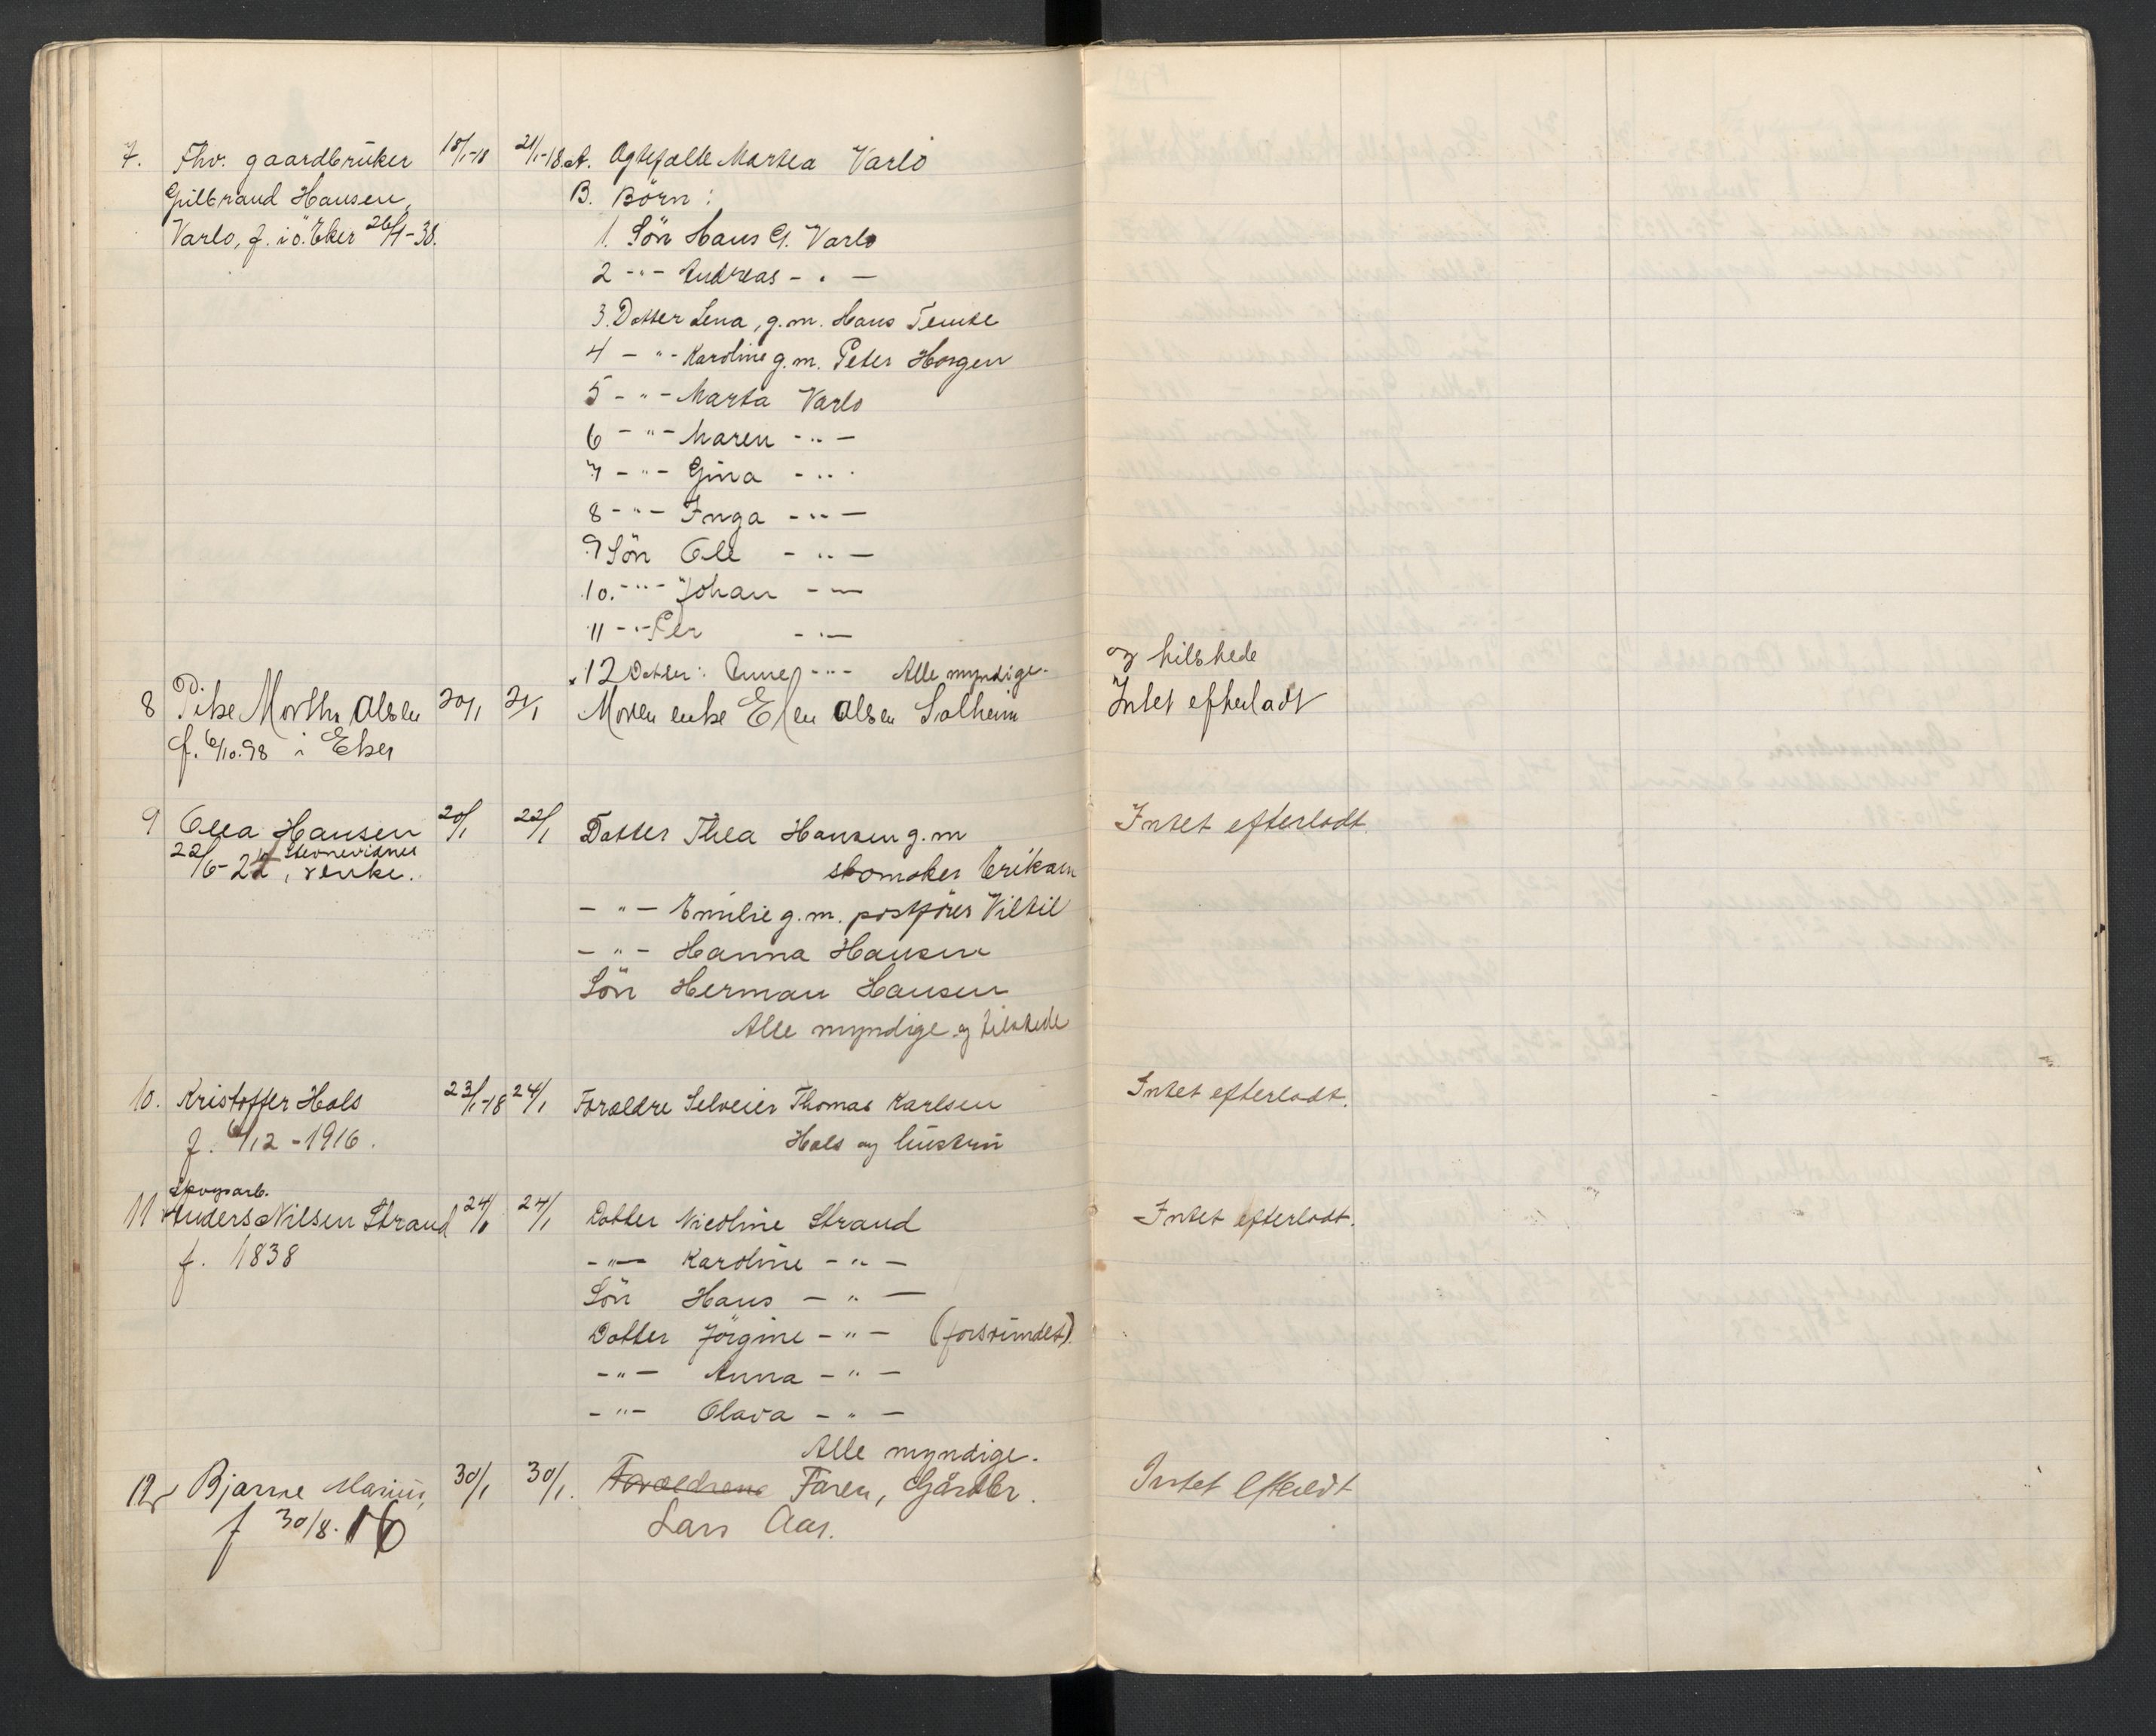 7. Fhv. gaardbruker 18/1-18 21/1-18. A. Ægtefælle Martea Varlo
Gulbrand Hansen, B. Börn :
Varlo, f. i ö. Eker 26/4-38. 1. Sön Hans G. Varlo
2 -"- Andreas - " -
3. Datter Lena, g.m. Hans Temte
4 - " - Karoline g.m. Peter Horgen
5 - " - Marta Varlo
6 - " - Maren - " -
7 - " - Gina - " -
8 - " - Inga - " -
9 Sön Ole - " -
10. - " - Johan - " -
11 - " - Per - " -
12 Datter: Anne - " - Alle myndige - og tilstede
8 Pike Marthe Olsen 20/1 21/1 Moren enke Elen Olsen Solheim Intet efterladt
f. 6/10.98 i Eker
9 Olea Hansen 20/1 22/1 Datter Thea Hansen g.m Intet efterladt.
22/6-24, enke. skomaker Eriksen
- " - Emilie g.m. postförer Viltil
- " - Hanna Hansen
Sön Herman Hansen
Alle myndige og tilstede
10. Kristoffer Hals 23/1-18 24/1 Forældre Selveier Thomas Karlsen Intet efterladt.
f. 6/12 - 1916. Hals og hustru
Skogsarb.
11 Anders Nilsen Strand 24/1 24/1 Datter Nicoline Strand Intet efterladt.
f. 1838 - " - Karoline - " -
Sön Hans - " -
Datter Jörgine - " - (forsvundet)
- " - Anna - " -
- " - Olava - " -
Alle myndige.
12 Bjarne Marius, 30/1 30/1. Forældrene Faren, Gårdbr. Intet efterladt
f 30/8. 16 Lars Aas.